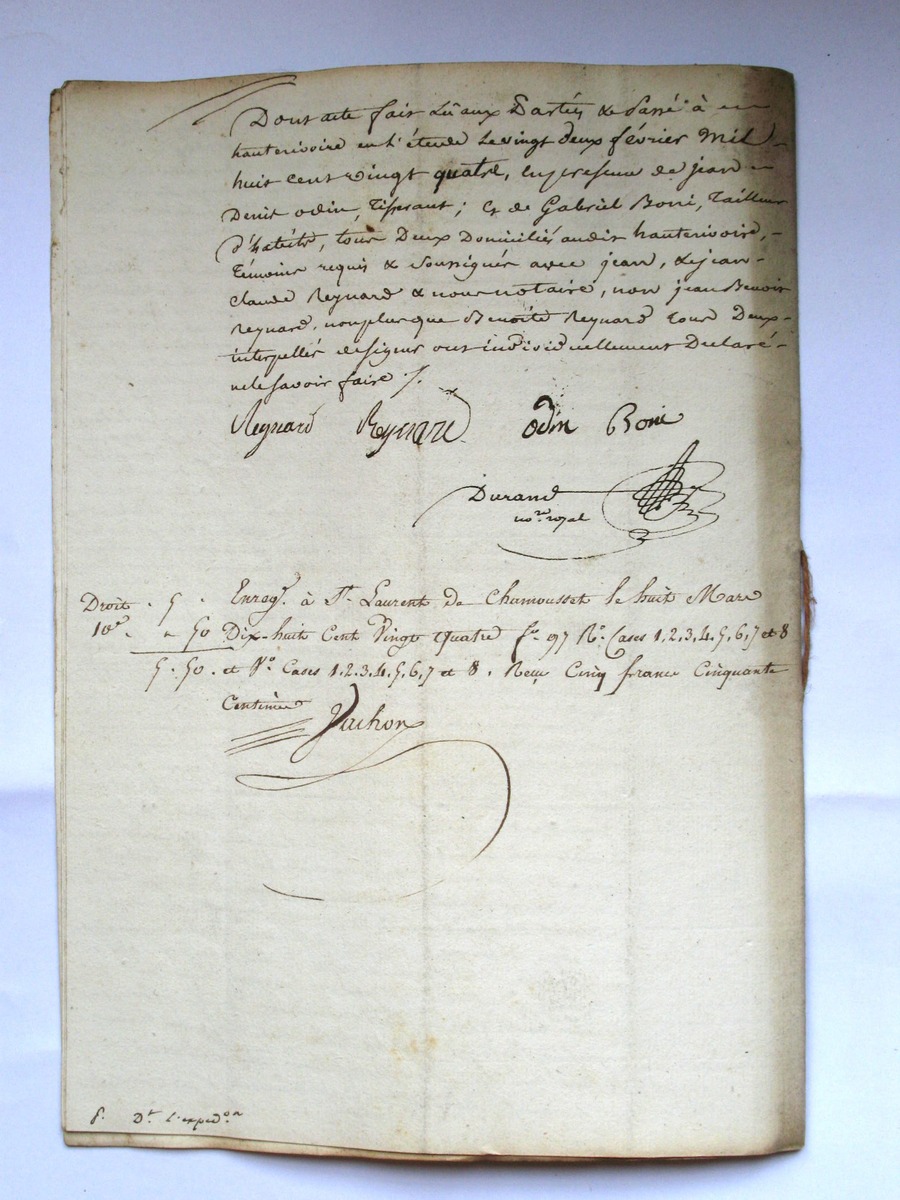 Dont acte fait Lû aux Parties & Passé à
hauterivoire en l'étude Le vingt deux février Mil
huit cent vingt quatre, en presence de jean
Denis odin, Tisserant; Et de Gabriel Boni, Tailleur
d'habits, tous Deux Domiciliés audit hauterivoire,
Témoins requis & Soussignés avec jean, & jean-
claude Reynard & nous notaire, non jean Benoit
Reynard, non plus que Benoite Reynard tous Deux
interpellés de signer ont individuellement Declaré
ne le savoir faire /.
Reynard Reynard Odin Boni
Durand
no.re royal
Droit . 5 . Enreg.t à St. Laurent de Chamousset le huit Mars
10e. " 50 Dix-huit Cent Vingt quatre f.o 97 R.o Cases 1,2,3,4,5,6,7 et 8
5. 50. et V.o Cases 1,2,3,4,5,6,7 et 8. Reçu Cinq francs Cinquante
Centimes
Vachon
8. D.t l'exped.on